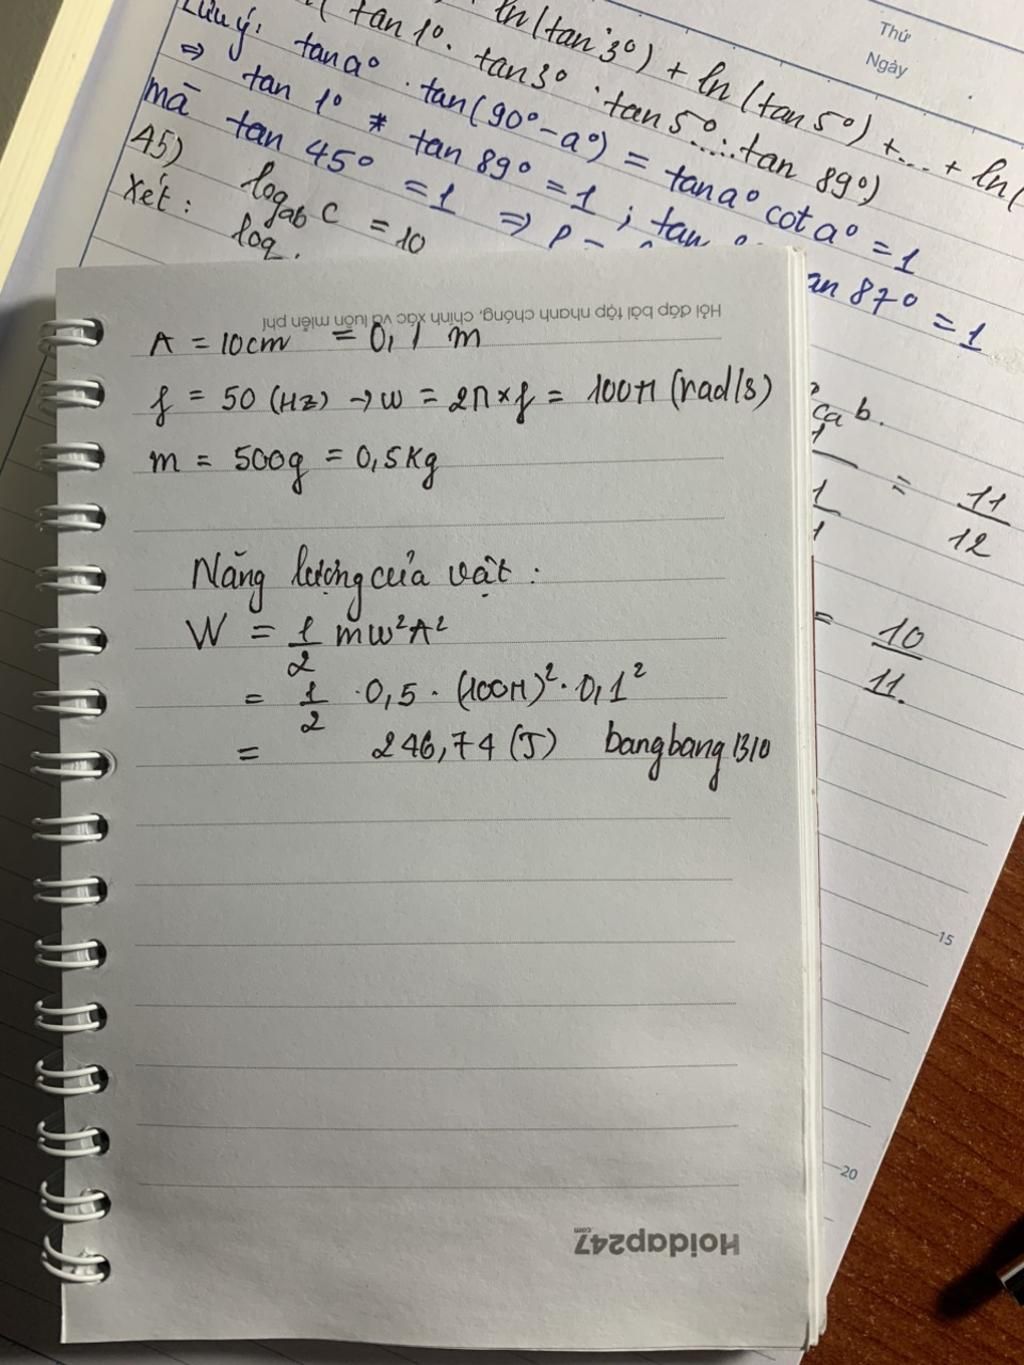 Thứ
Ngày
ln(tan 3°) + ln(tan 5°) + ... + ln(
( tan 1°. tan 3° . tan 5° ..... tan 89°)
Lưu ý: tan a° . tan(90° - a°) = tan a° cot a° = 1
⇒ tan 1° * tan 89° = 1 ; tan
an 87° = 1
mà tan 45° = 1 ⇒ P =
45) log_ab c = 10
Xét: log
ca b.
1
1 = 11/12
1
= 10/11.
Hỏi đáp bài tập nhanh chóng, chính xác và luôn miễn phí
A = 10cm = 0,1 m
f = 50 (Hz) → w = 2π×f = 100π (rad/s)
m = 500g = 0,5Kg
Năng lượng của vật :
W = 1/2 mw²A²
= 1/2 . 0,5 . (100π)² . 0,1²
= 246,74 (J) bangbang1310
15
20
Hoidap247.com